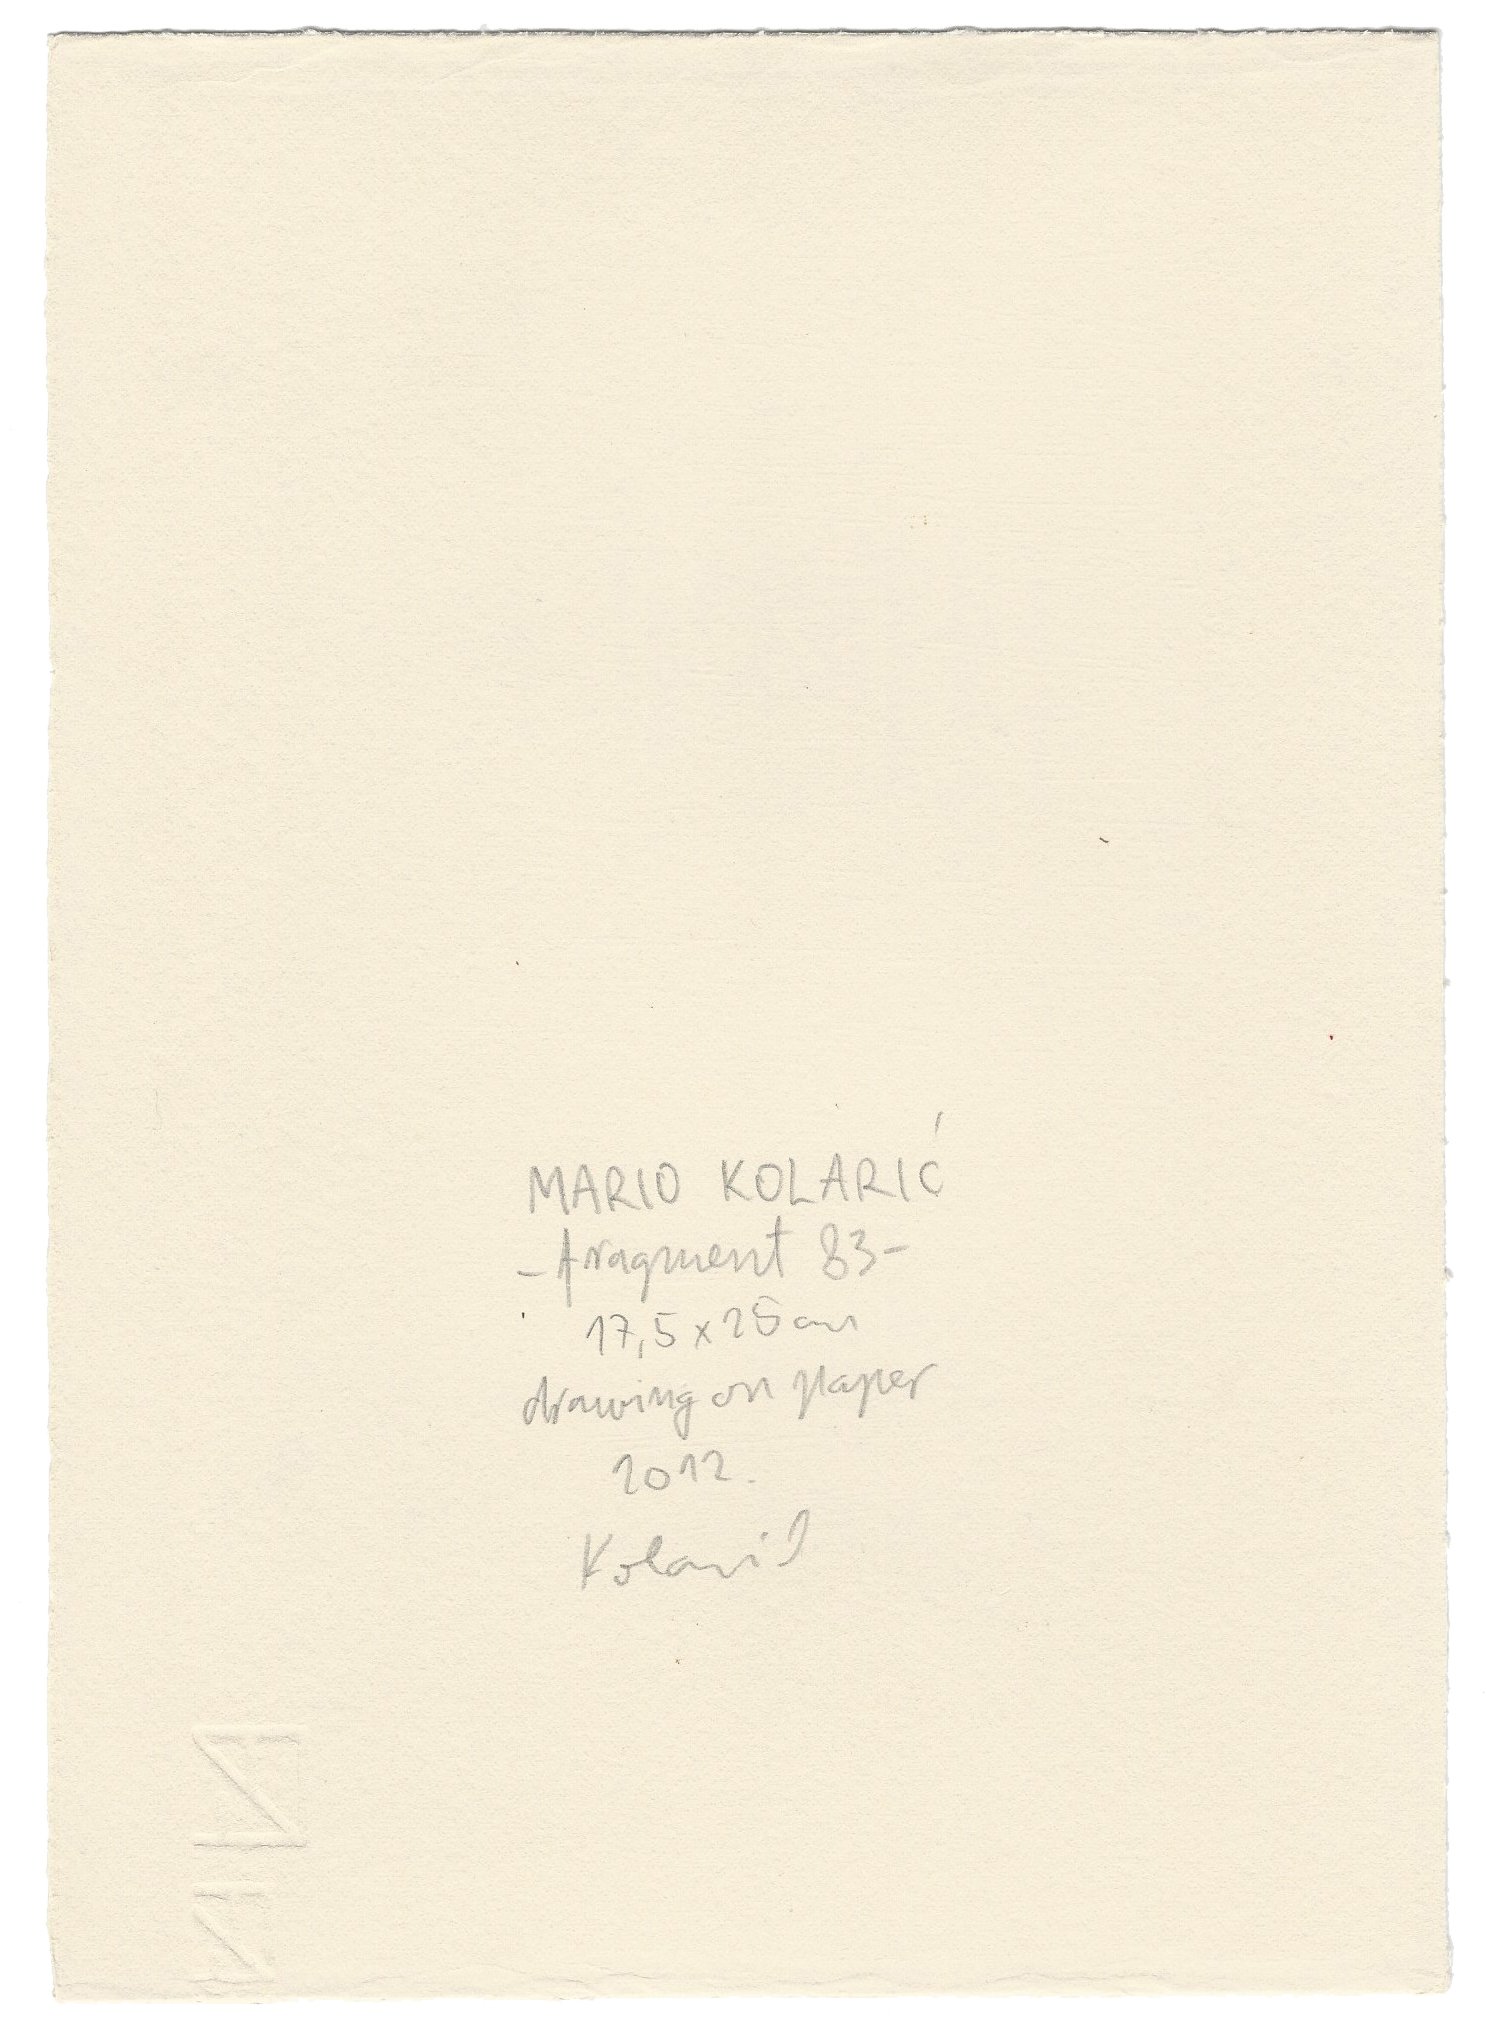 MARIO KOLARIĆ
-fragment 83-
17,5 x 25 cm
drawing on paper
2012.
Kolarić